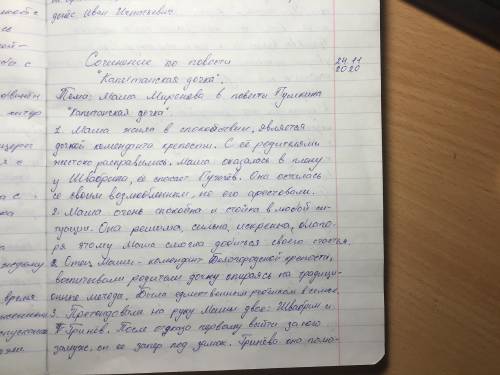 дьёс Иван Игнатьевич.
Сочинение по повести
24.11
2020
"Капитанская дочка".
Тема: Маша Миронова в повести Пушкина
"Капитанская дочка".
1. Маша жила в спокойствии, является
дочкой коменданта крепости. С её родителями
жестоко расправились. Маша оказалась в плену
у Швабрина, ее спасает Пугачёв. Она осталась
со своим возлюбленным, но его арестовали.
2. Маша очень спокойна и стойка в любой си-
туации. Она решима, сильна, искренна, благо-
ря этому Маша смогла добиться своего счастья.
2. Отец Маши - комендант Белогородской крепости,
воспитывали родители дочку опираясь на традици-
онные метода. Была единственным ребенком в семье.
3. Претендовали на руку Маши двое: Швабрин и
Гринёв. После отказа первому выйти за него
замуж, он ее запер под замок. Гринёва она полю-
время